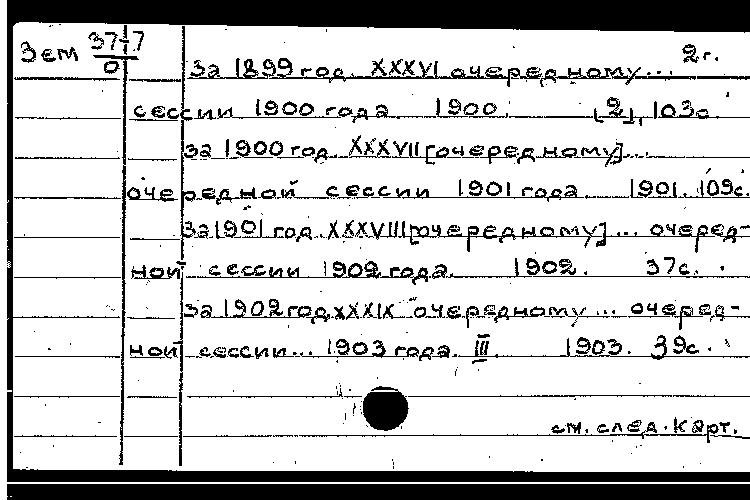 Зем 37-7/0
2г.
За 1899 год. XXXVI очередному...
сессии 1900 года. 1900. [2], 103с.
за 1900 год. XXXVII [очередному]...
очередной сессии 1901 года. 1901. 109с.
За 1901 год. XXXVIII [очередному]... очеред-
ной сессии 1902 года. 1902. 37с.
за 1902 год XXXIX очередному... очеред-
ной сессии... 1903 года. III. 1903. 39с.
см. след. карт.